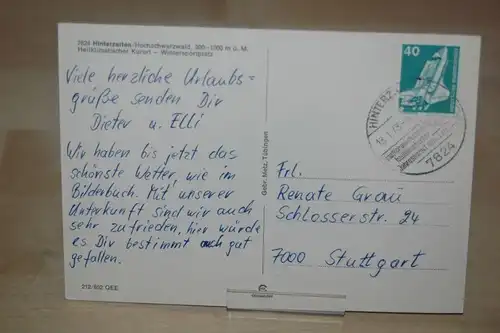 7824 Hinterzarten /Hochschwarzwald, 900-1200 m ü. M.
Heilklimatischer Kurort - Wintersportplatz
Viele herzliche Urlaubs=
grüße senden Dir
Dieter u. Elli
Wir haben bis jetzt das
schönste Wetter, wie im
Bilderbuch. Mit unserer
Unterkunft sind wir auch
sehr zufrieden, hier würde
es Dir bestimmt auch gut
gefallen.
212/502 QEE
Gebr. Metz, Tübingen
40
HINTERZ
7824
Frl.
Renate Grau
Schlosserstr. 24
7000 Stuttgart